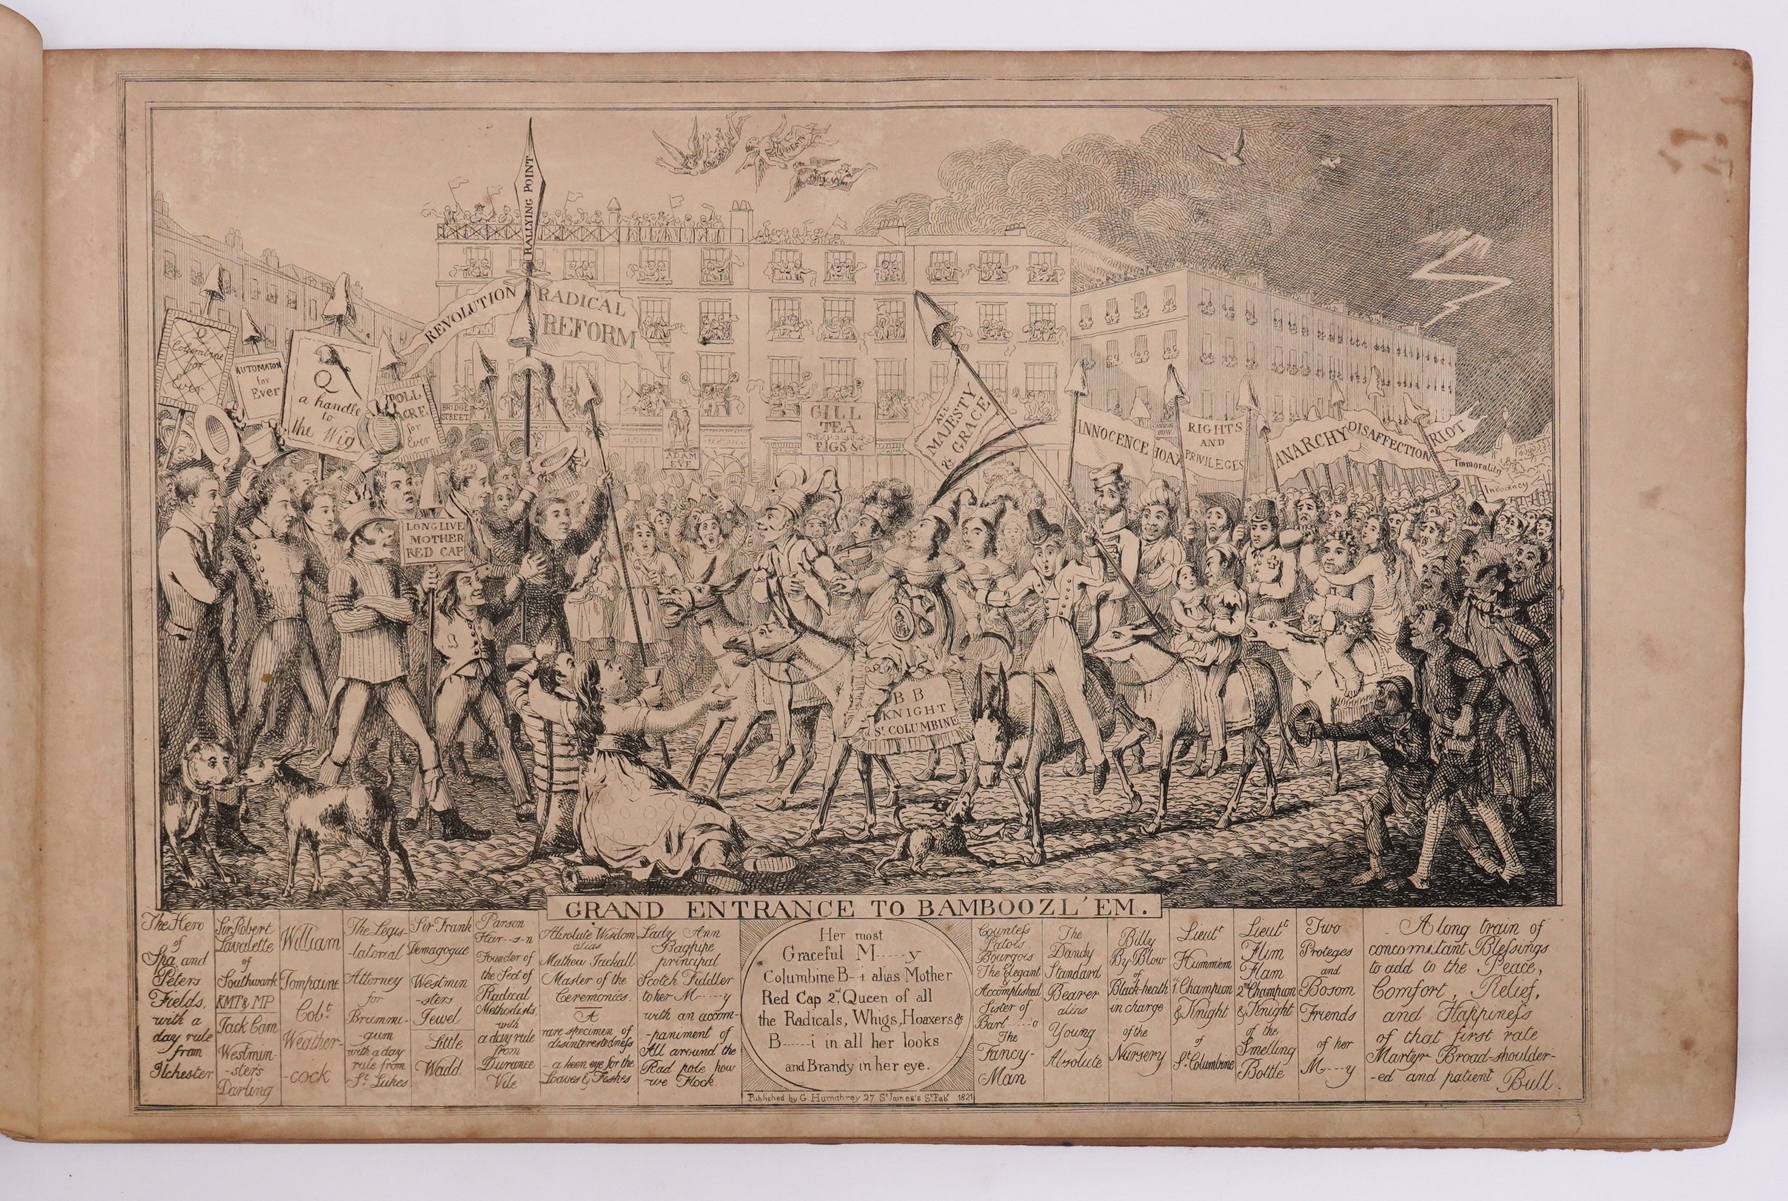 RALLYING POINT
REVOLUTION
RADICAL
REFORM
Q
Columbine
for
Ever
AUTOMATON
for
Ever
Q
a handle
to
the Wig
POLL
ACRE
for
Ever
BRIDGE
STREET
ADAM
EVE
GILL
TEA
FIGS &c
ALL
MAJESTY
& GRACE
INNOCENCE
HOAX
RIGHTS
AND
PRIVILEGES
ANARCHY
DISAFFECTION
RIOT
Immorality
Indecency
LONG LIVE
MOTHER
RED CAP
B B
KNIGHT
St COLUMBINE
GRAND ENTRANCE TO BAMBOOZL'EM.
The Hero
of
Spa and
Peters
Fields,
with a
day rule
from
Ilchester
Sir Robert
Lavalette
of
Southwark
KMT & MP
Jack Cam
Westmin-
-sters
Darling
William
Tompaine
Cobt
Weather-
-cock
The Legis-
latorial
Attorney
for
Brummi-
gum
with a day
rule from
St Lukes
Sir Frank
Demagogue
Westmin
-sters
Jewel
Little
Wadd
Parson
Har-s-n
Founder of
the Sed of
Radical
Methodists
with
a day rule
from
Durance
Vile
Absolute Wisdom
alias
Mathew Jackall
Master of the
Ceremonies.
A
rare specimen of
disinterestedness
- a keen eye for the
Loaves & Fishes
Lady Ann
Bagpipe
principal
Scotch Fiddler
to her M----y
with an accom-
-paniment of
All around the
Rad pole how
we Flock.
Her most
Graceful M-----y
Columbine B--i alias Mother
Red Cap 2d Queen of all
the Radicals, Whigs, Hoaxers &
B-----i in all her looks
and Brandy in her eye.
Published by G Humphrey 27 St James's St Feby 1821
Countess
Patois
Bourgois
The Elegant
Accomplished
Sister of
Bart-----o
The
Fancy-
Man
The
Dandy
Standard
Bearer
alias
Young
Absolute
Billy
By-Blow
of
Black-heath
in charge
of the
Nursery
Lieutt
Hummem
1st Champion
& Knight
of
St Columbine
Lieutt
Flim
Flam
2d Champion
& Knight
of the
Smelling
Bottle
Two
Proteges
and
Bosom
Friends
of her
M---y
A long train of
concomitant Blessings
to add to the Peace,
Comfort, Relief,
and Happiness
of that first rate
Martyr - Broad-shoulder-
-ed and patient Bull.